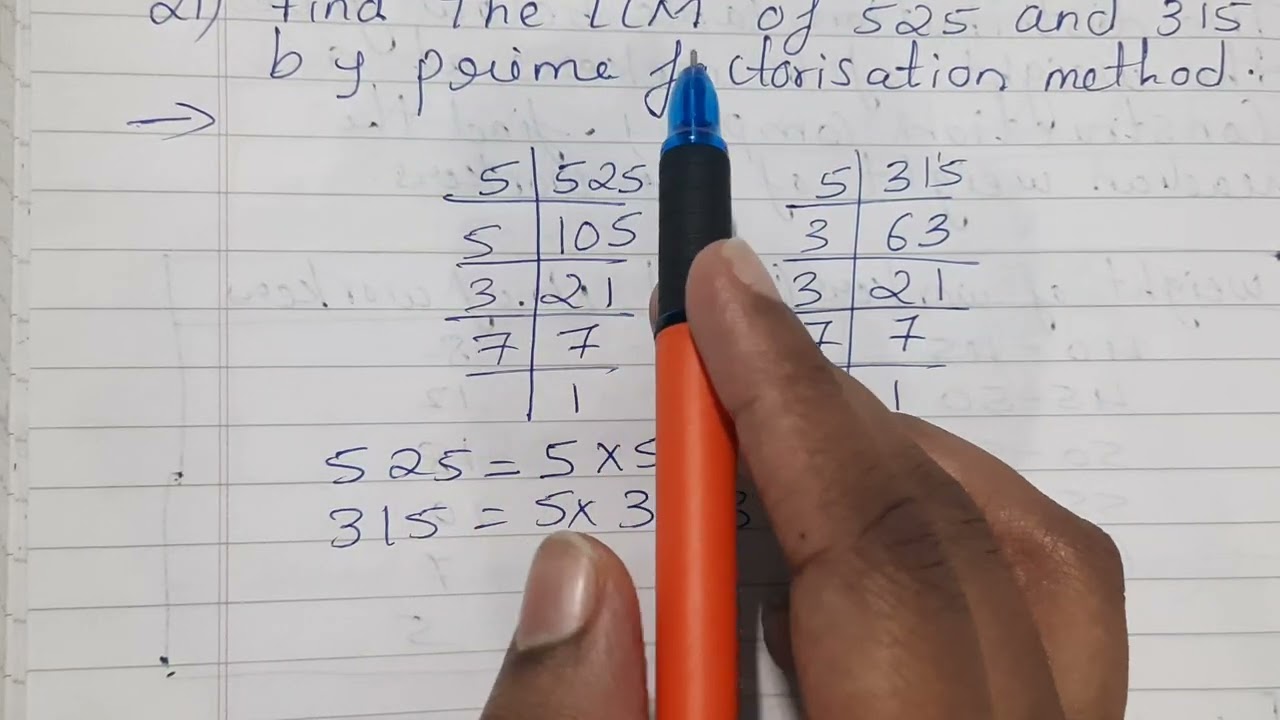 21) Find The LCM of 525 and 315
by prime f ctorisation method.
5 525
5 105
3 21
7 7
1
5 315
3 63
3 21
7 7
1
525 = 5 × 5
315 = 5 × 3 3